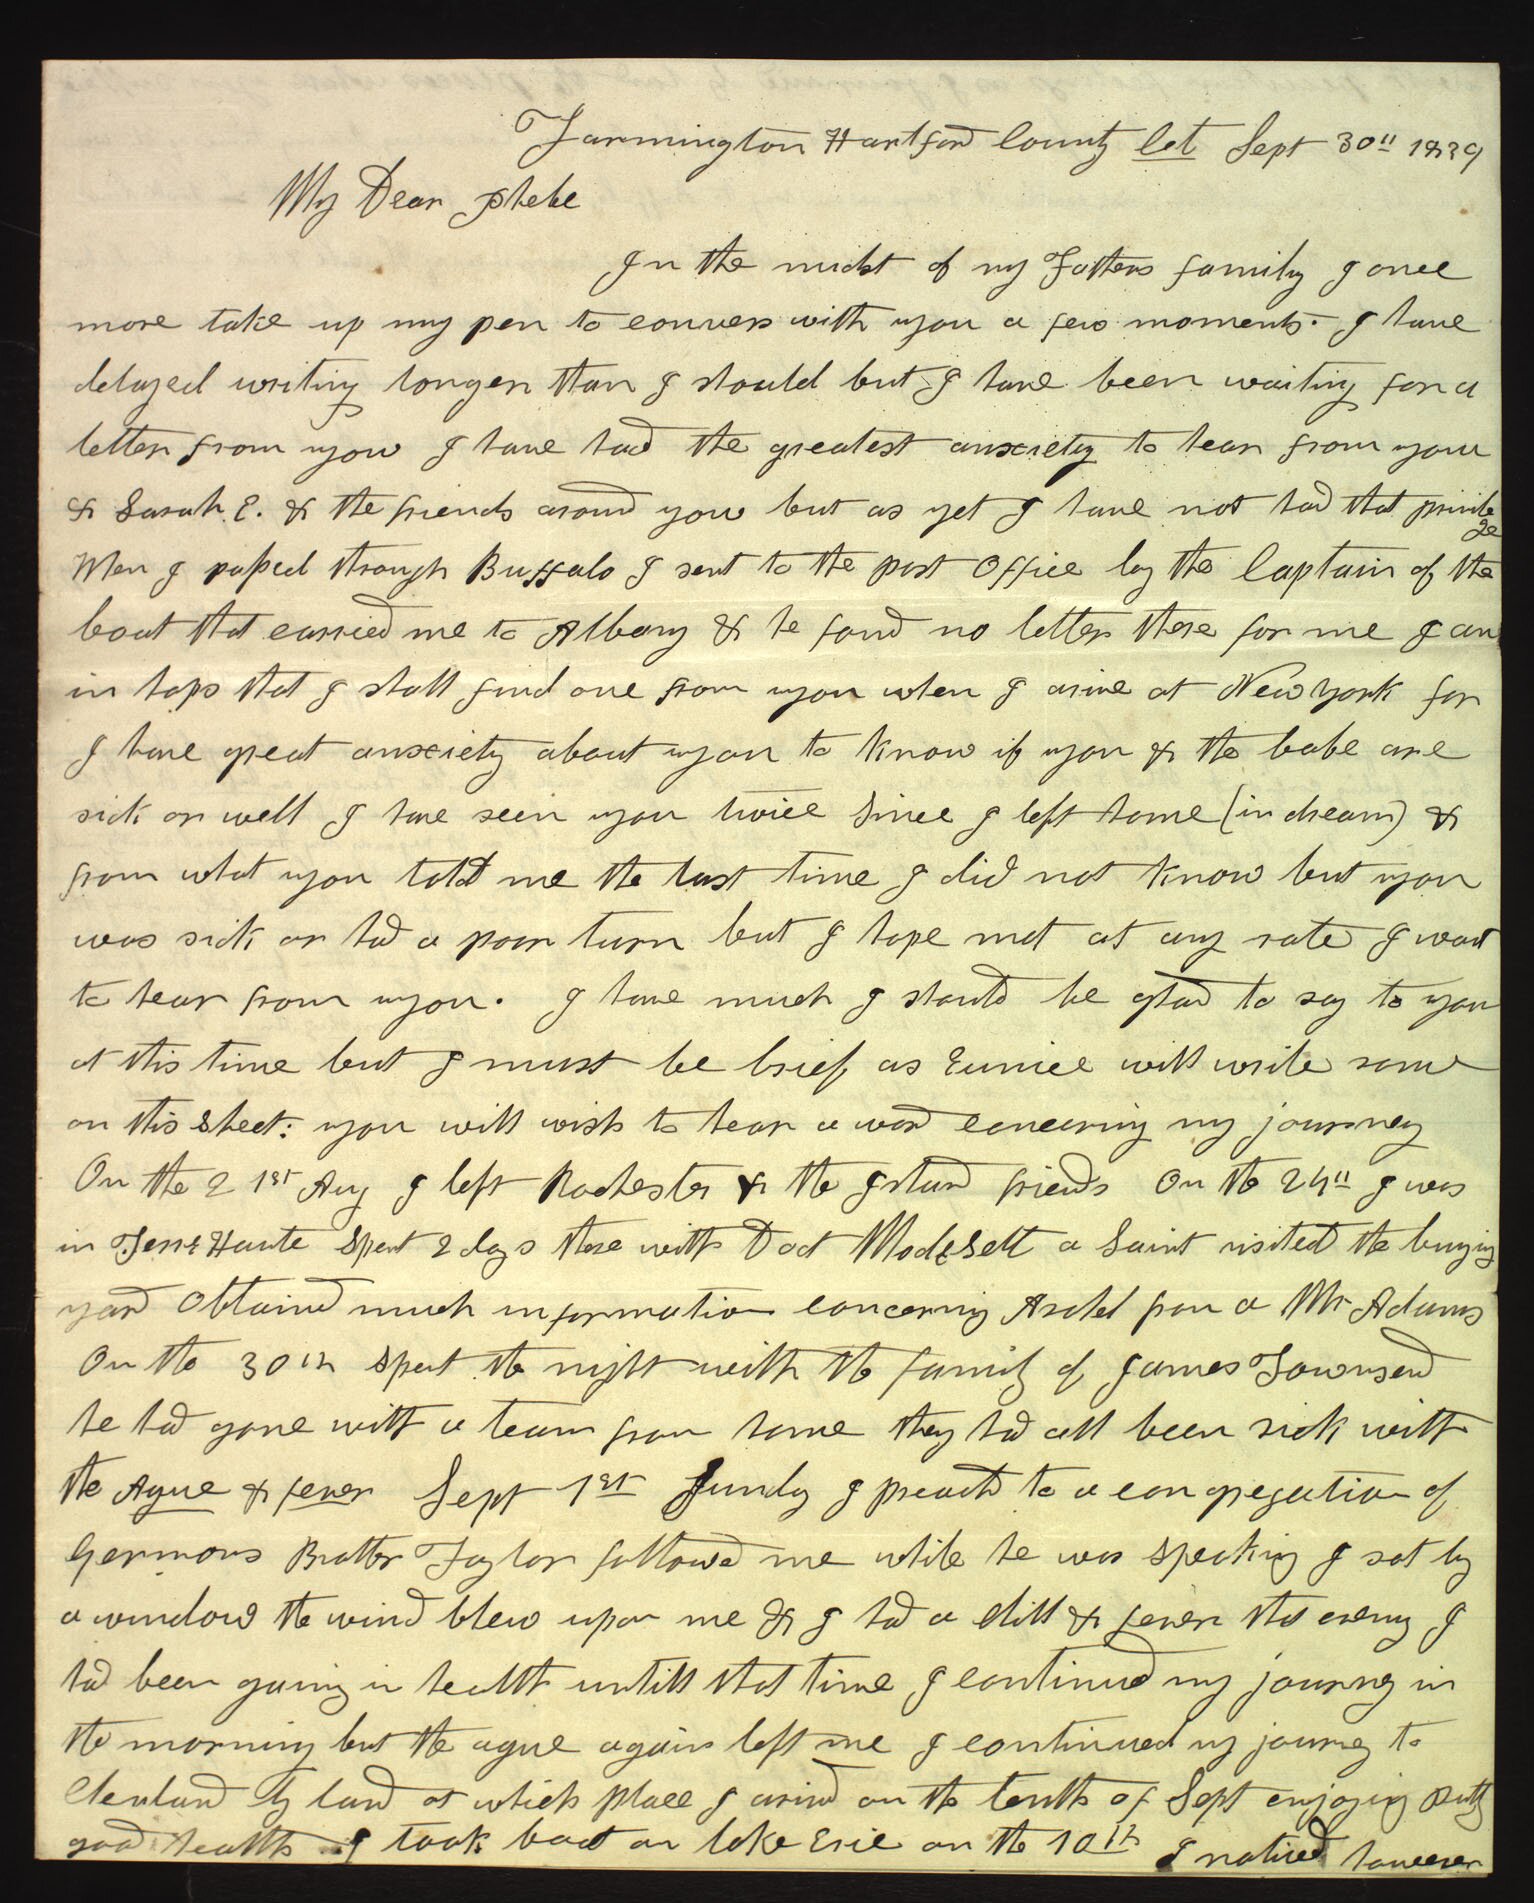 Farmington Hartford County Cct Sept 30th 1839
My Dear Phebe
In the midst of my Fathers family I once
more take up my pen to convers with you a few moments. I have
delayed writing longer than I should but I have been waiting for a
letter from you I have had the greatest anxciety to hear from you
& Sarah E. & the friends around you but as yet I have not had that privilege
When I passed through Buffalo I sent to the post Office by the Captain of the
boat that carried me to Albany & he found no letter there for me I am
in hops that I shall find one from you when I arive at New York for
I have great anxciety about you to know if you & the babe are
sick or well I have seen you twice Since I left home (in dream) &
from what you told me the last time I did not know but you
was sick or had a poor turn but I hope not at any rate I want
to hear from you. I have much I should be glad to say to you
at this time but I must be brief as Eunice will write some
on this Sheet: you will wish to hear a word concerning my journey
On the 21st Aug I left Rochester & the Island friends On the 24th I was
in Terre Haute Spent 2 days there with Doct Modesett a Saint visited the burying
yard Obtained much information concerning Asahel from a Mr Adams
On the 30th Spent the night with the family of James Townsend
he had gone with a team from home they had all been sick with
the Ague & fever Sept 1st Sunday I preachd to a congregation of
Germons Brother Taylor followed me while he was Speaking I sat by
a window the wind blew upon me & I had a chill & fever that evening I
had been gaining in health untill that time I continued my journey in
the morning but the ague again left me I continued my journey to
Cleveland by land at which place I arived on the tenth of Sept enjoying Pretty
good health I took boat on lake Erie on the 10th I noticed however